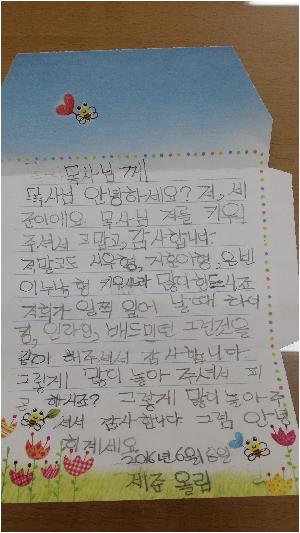 목사님께
목사님 안녕하세요? 저, 세
준이에요. 목사님 저를 키워
주셔서 고맙고, 감사합니다.
저말고도 형, 형,
형 키우느라 많이 힘드시죠
저희가 일찍 일어 날때 하이
킹, 인라인, 배드민턴 그런것을
같이 해주셔서 감사합니다.
그렇게 많이 놀아 주셔서 피
곤 하시죠? 그렇게 많이 놀아주
셔서 감사합니다 그럼 안녕
히계세요
2016년 6월 8일
세준 올림